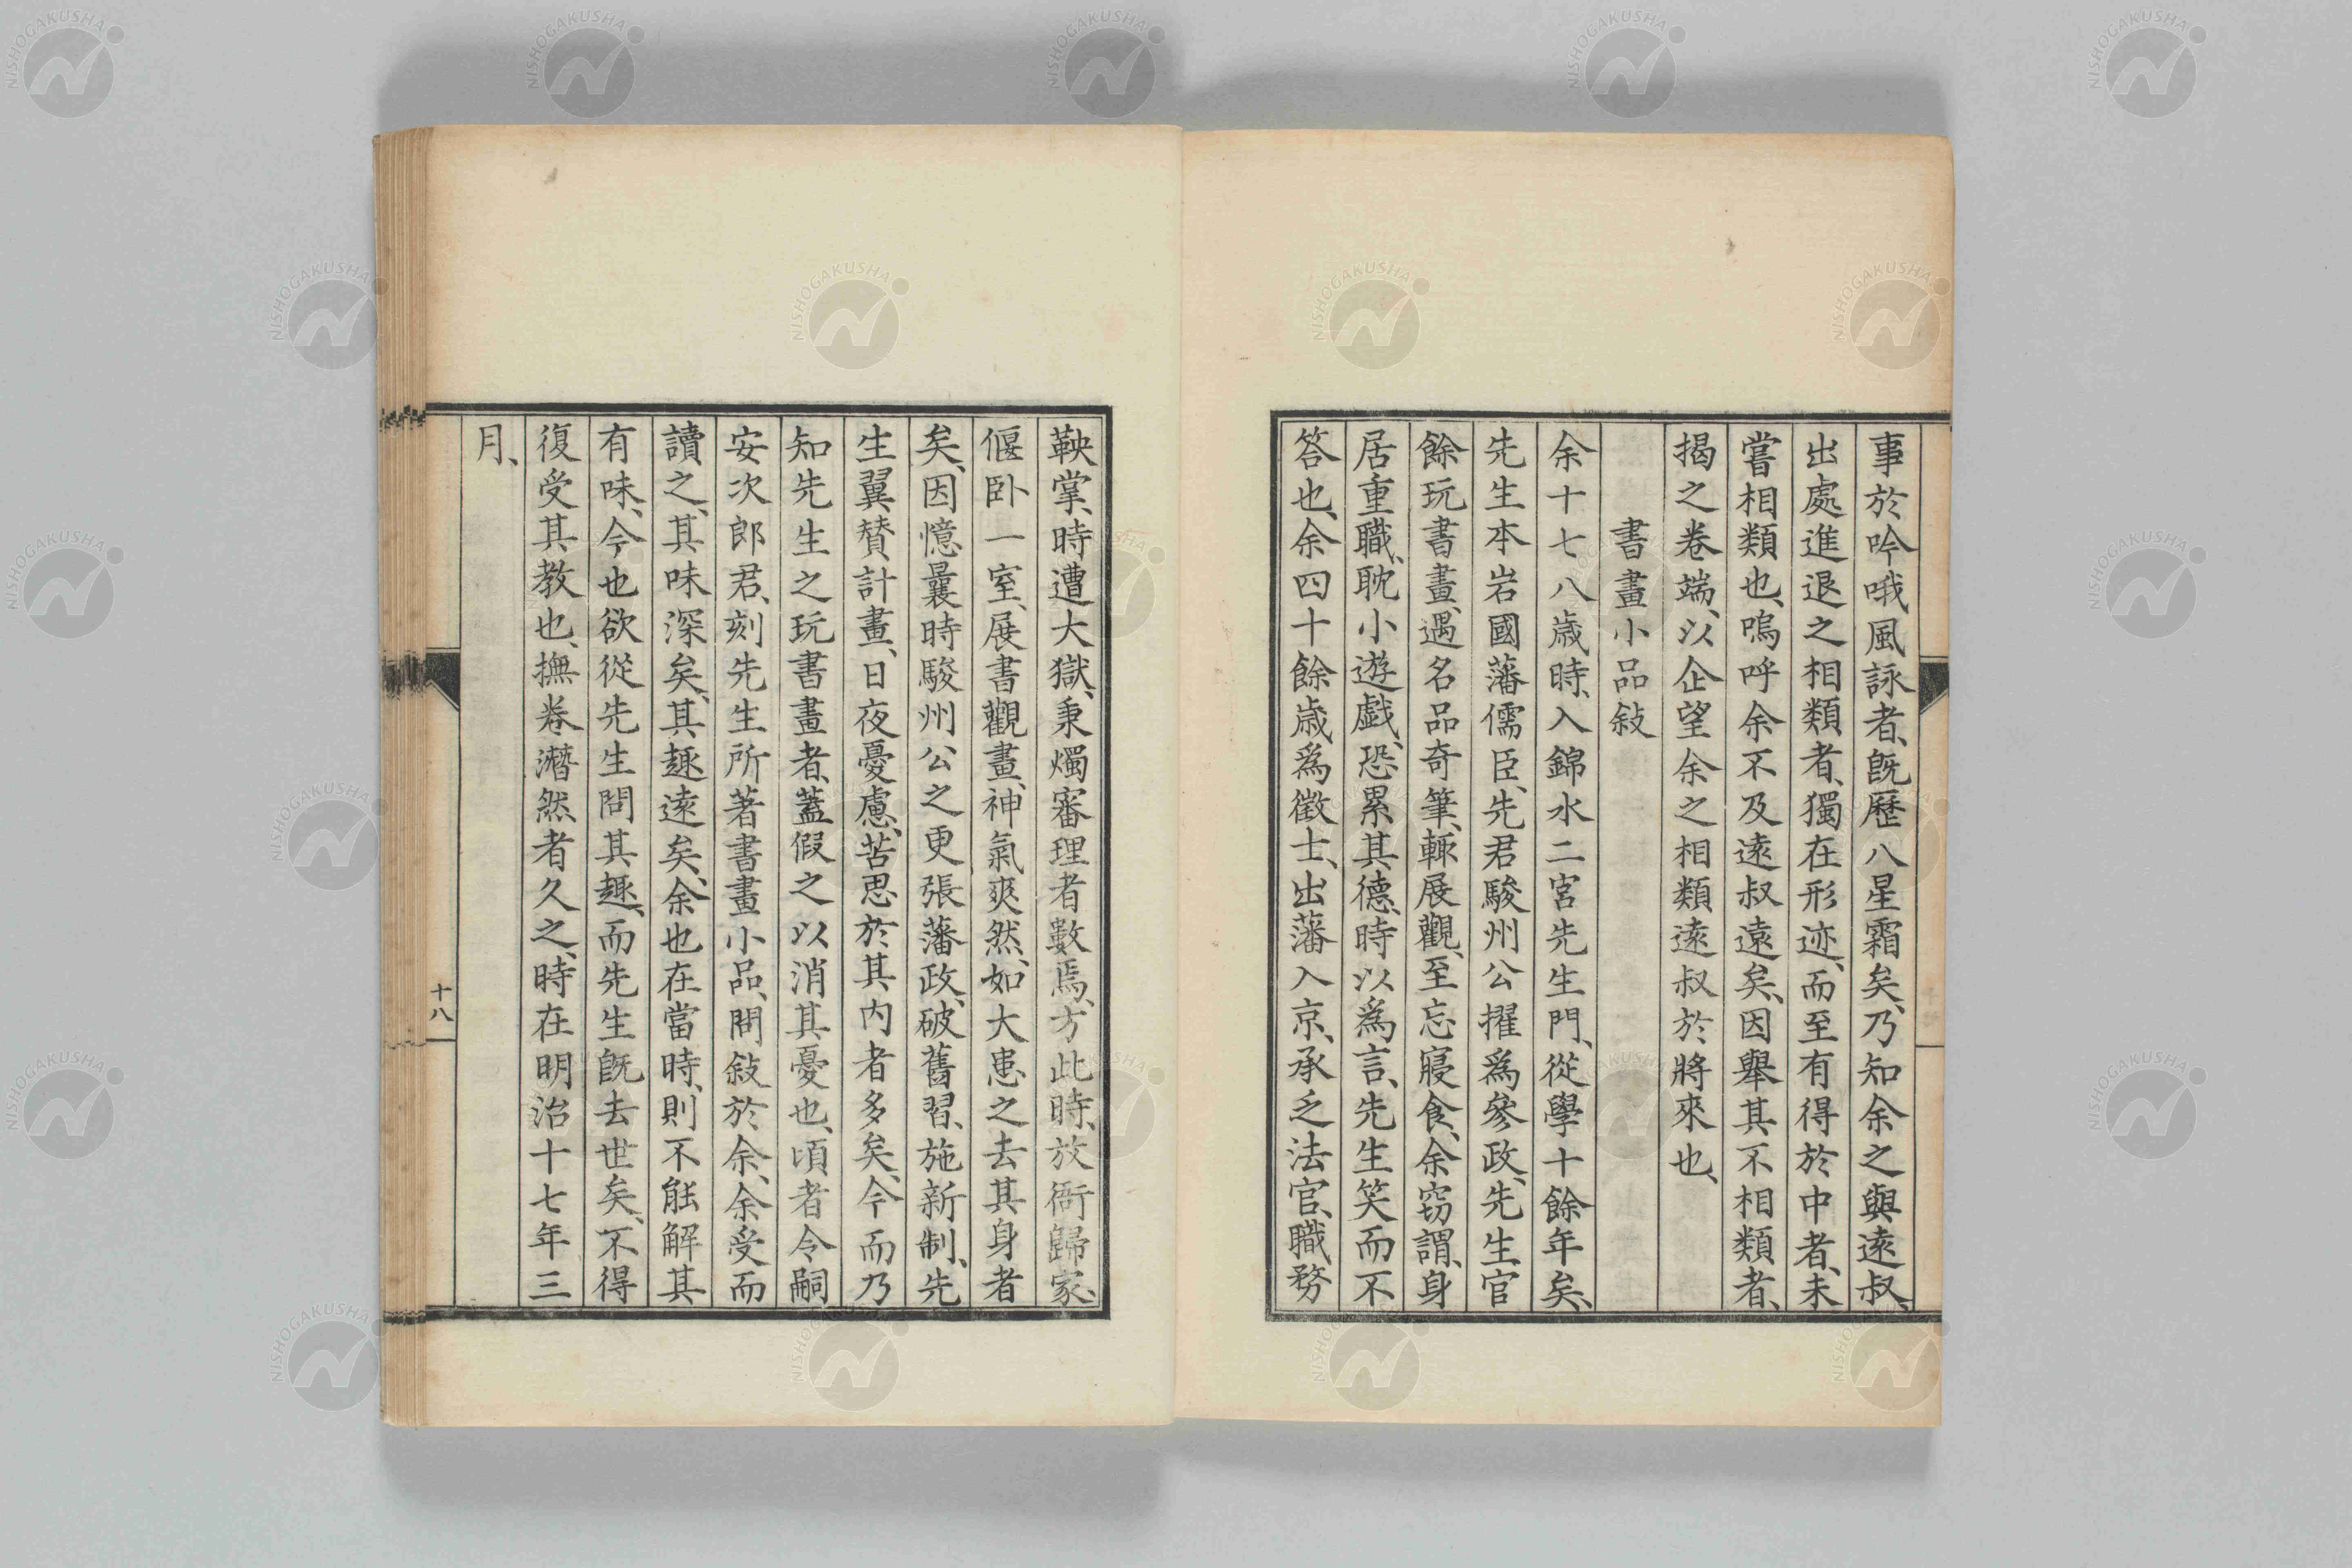 事於吟哦風詠者、既歷八星霜矣、乃知余之與遠叔、
出處進退之相類者、獨在形迹、而至有得於中者、未
嘗相類也、嗚呼余不及遠叔遠矣、因舉其不相類者、
揭之卷端、以企望余之相類遠叔於將來也、
書畫小品敍
余十七八歲時、入錦水二宮先生門、從學十餘年矣、
先生本岩國藩儒臣、先君駿州公擢爲參政、先生官
餘玩書畫、遇名品奇筆、輙展觀、至忘寢食、余窃謂、身
居重職、耽小遊戲、恐累其德、時以爲言、先生笑而不
答也、余四十餘歲、爲徵士、出藩入京、承乏法官、職務
鞅掌、時遭大獄、秉燭審理者數焉、方此時、放衙歸家、
偃卧一室、展書觀畫、神氣爽然、如大患之去其身者
矣、因憶曩時駿州公之更張藩政、破舊習、施新制、先
生翼賛計畫、日夜憂慮、苦思於其内者多矣、今而乃
知先生之玩書畫者、蓋假之以消其憂也、頃者令嗣
安次郎君、刻先生所著書畫小品、問敍於余、余受而
讀之、其味深矣、其趣遠矣、余也在當時、則不能解其
有味、今也欲從先生問其趣、而先生既去世矣、不得
復受其教也、撫卷潸然者久之、時在明治十七年三
月、
十八
NISHOGAKUSHA